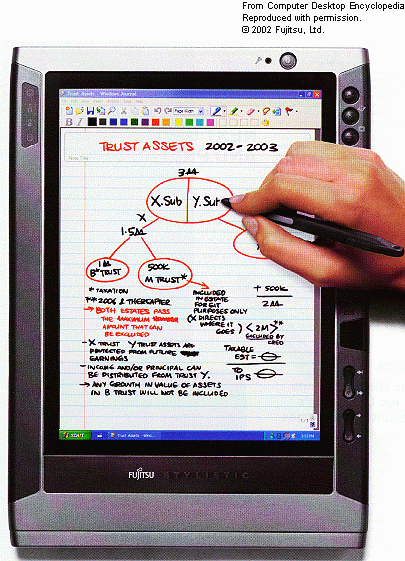 From Computer Desktop Encyclopedia
Reproduced with permission.
© 2002 Fujitsu, Ltd.
Trust Assets - Windows Journal
Page Width
B I
TRUST ASSETS 2002-2003
Note Title
X.Sub Y.Sub
X
1.5M
B* TRUST
500K
M TRUST*
INCLUDED
IN ESTATE
FOR EIT
PURPOSES ONLY
(X DIRECTS
WHERE IT
GOES)
+ 500K
2M
<2M>**
EXCLUDED BY
CRED
TAXABLE
EST =
TO
IPS
* TAXATION
** 2006 & THEREAFTER
→ BOTH ESTATES PASS
THE MAXIMUM
AMOUNT THAT CAN
BE EXCLUDED
- X TRUST Y TRUST ASSETS ARE
PROTECTED FROM FUTURE
EARNINGS
- INCOME AND/OR PRINCIPAL CAN
BE DISTRIBUTED FROM TRUST Y.
→ ANY GROWTH IN VALUE OF ASSETS
IN B TRUST WILL NOT BE INCLUDED
1/1
start
Trust Assets - Wind...
FUJITSU STYLISTIC